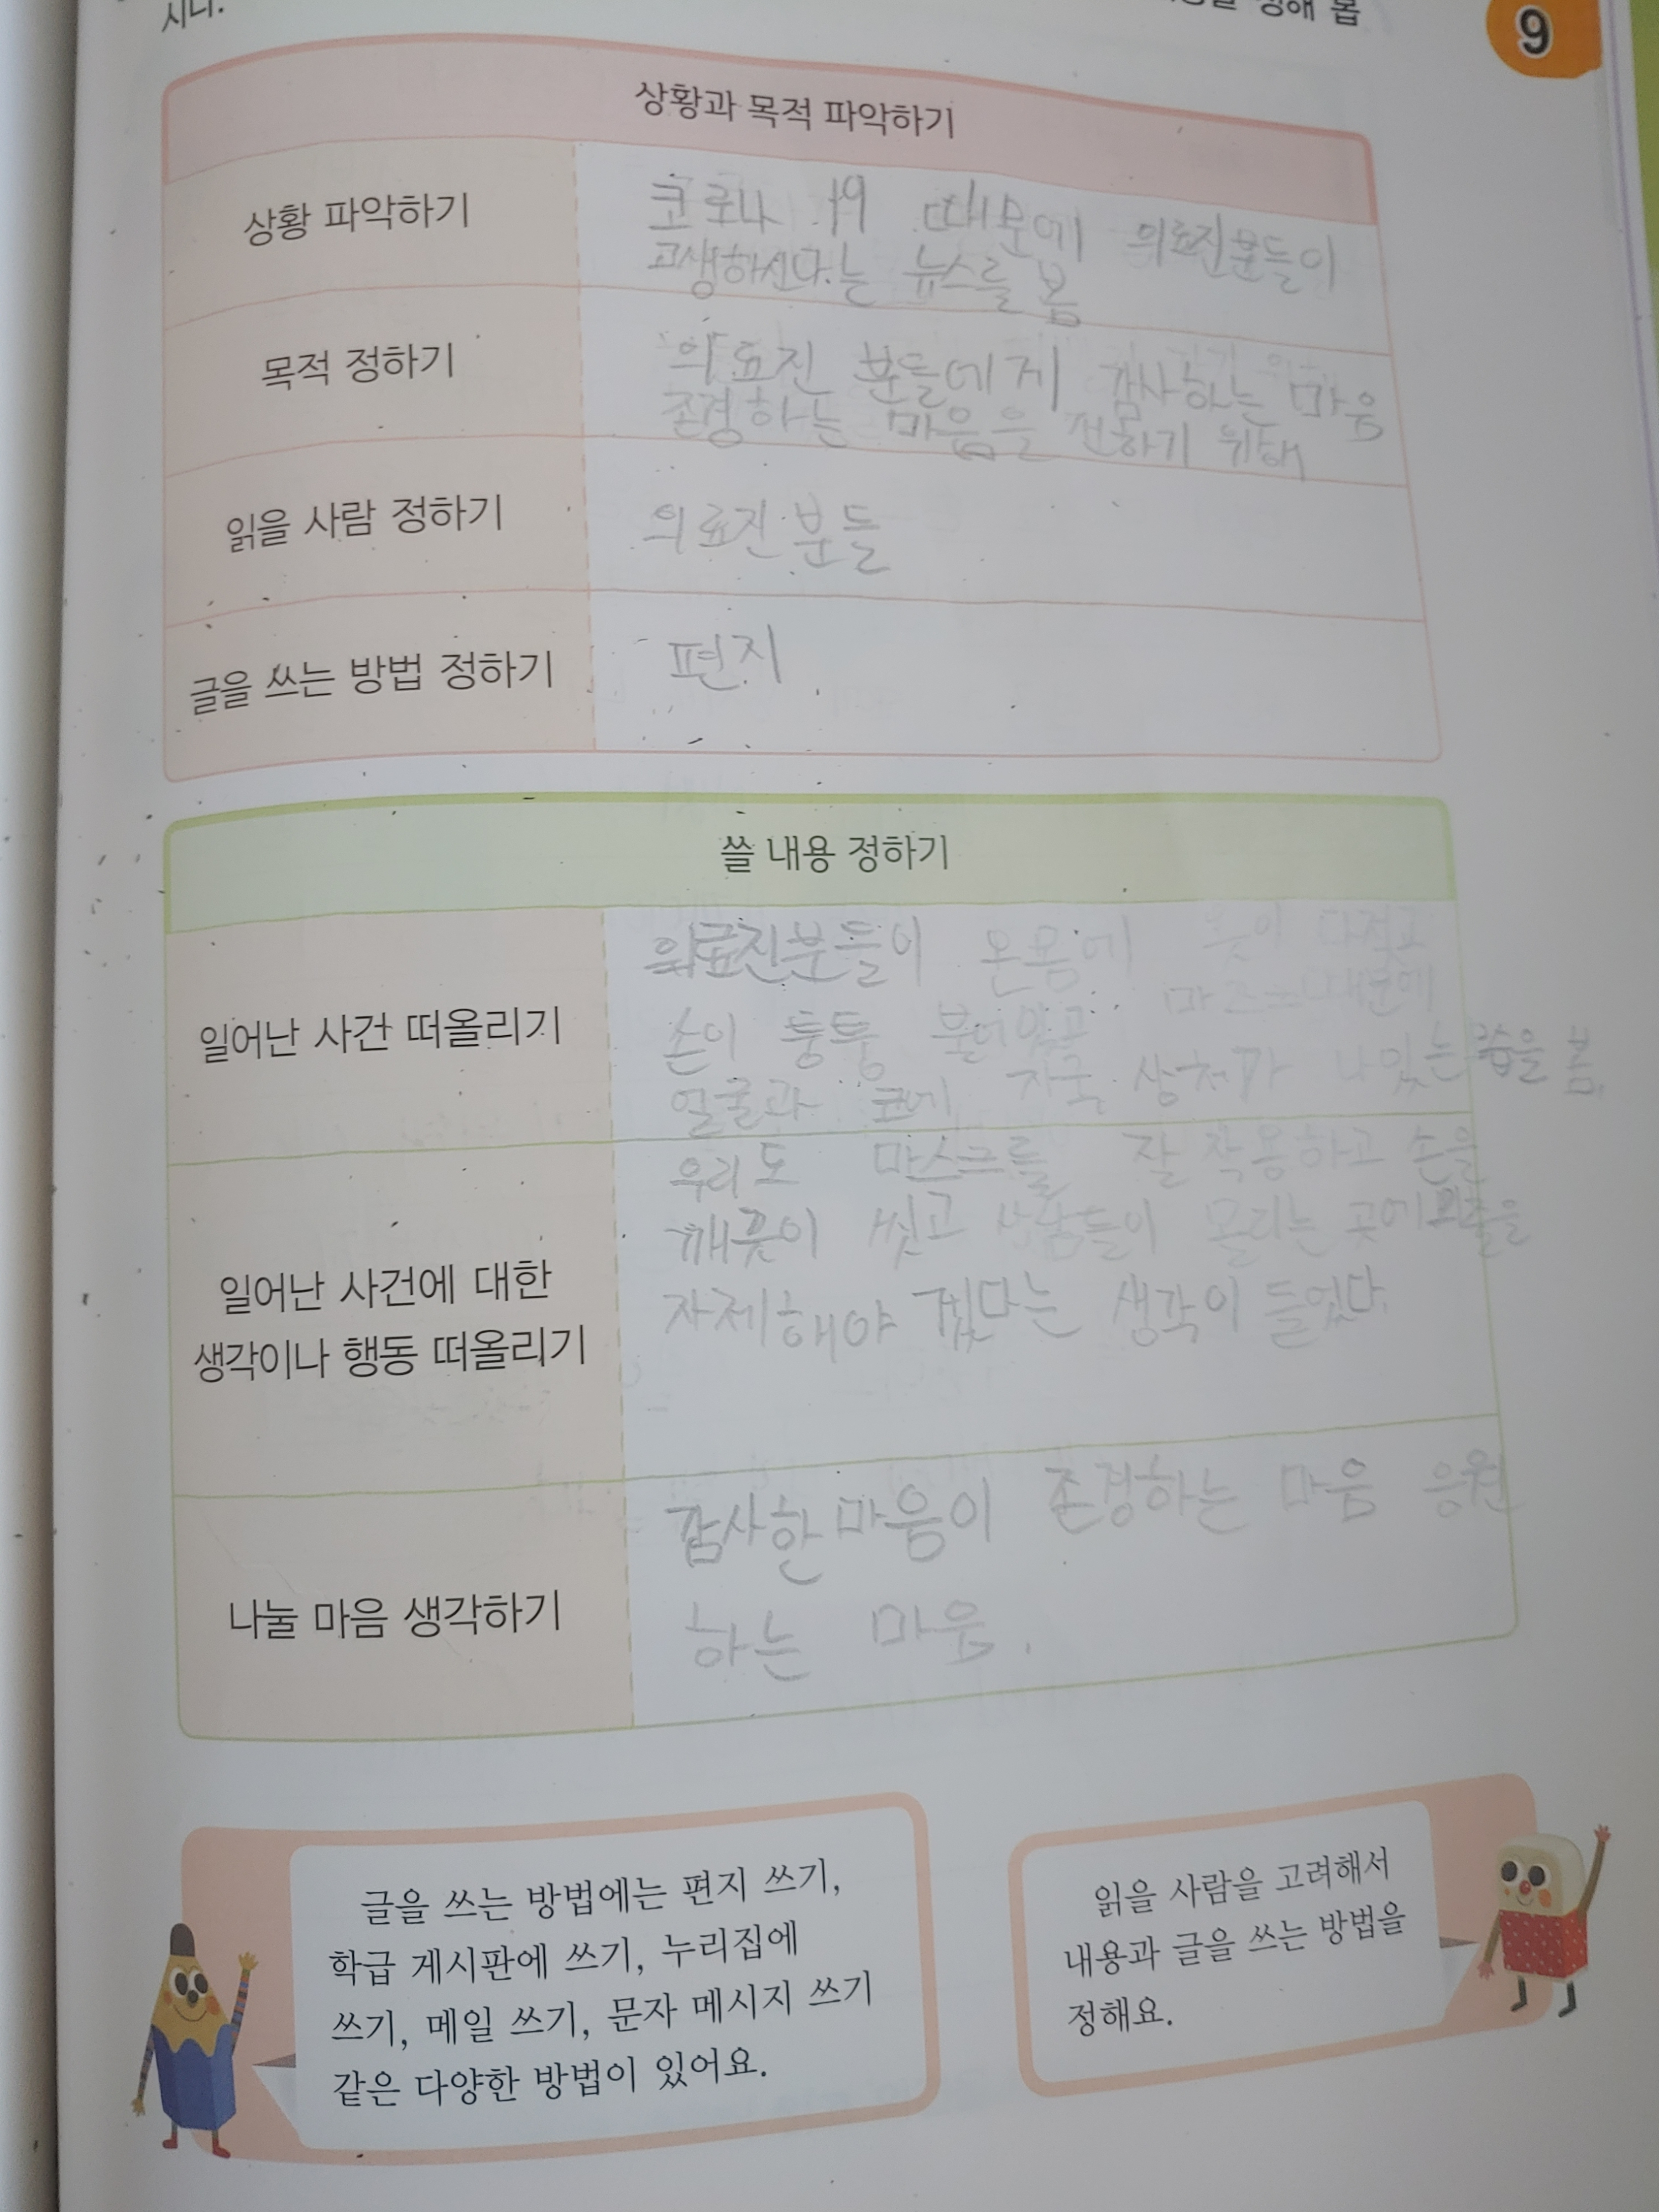 시다.
정해 봅
9
상황과 목적 파악하기
상황 파악하기
코로나 19 때문에 의료진분들이
고생하신다는 뉴스를 봄
목적 정하기
의료진 분들에게 감사하는 마음
존경하는 마음을 전하기 위해
읽을 사람 정하기
의료진분들
글을 쓰는 방법 정하기
편지
쓸 내용 정하기
일어난 사건 떠올리기
의료진분들이 온몸에 다 젖고
손이 퉁퉁 불어있고 때문에
얼굴과 코에 자국, 상처가 나있는 을 봄.
일어난 사건에 대한
생각이나 행동 떠올리기
우리도 마스크를 잘 착용하고 손을
깨끗이 씻고 사람들이 몰리는 곳에 외출을
자제해야 겠다는 생각이 들었다.
나눌 마음 생각하기
감사한 마음이 존경하는 마음 응원
하는 마음.
글을 쓰는 방법에는 편지 쓰기,
학급 게시판에 쓰기, 누리집에
쓰기, 메일 쓰기, 문자 메시지 쓰기
같은 다양한 방법이 있어요.
읽을 사람을 고려해서
내용과 글을 쓰는 방법을
정해요.